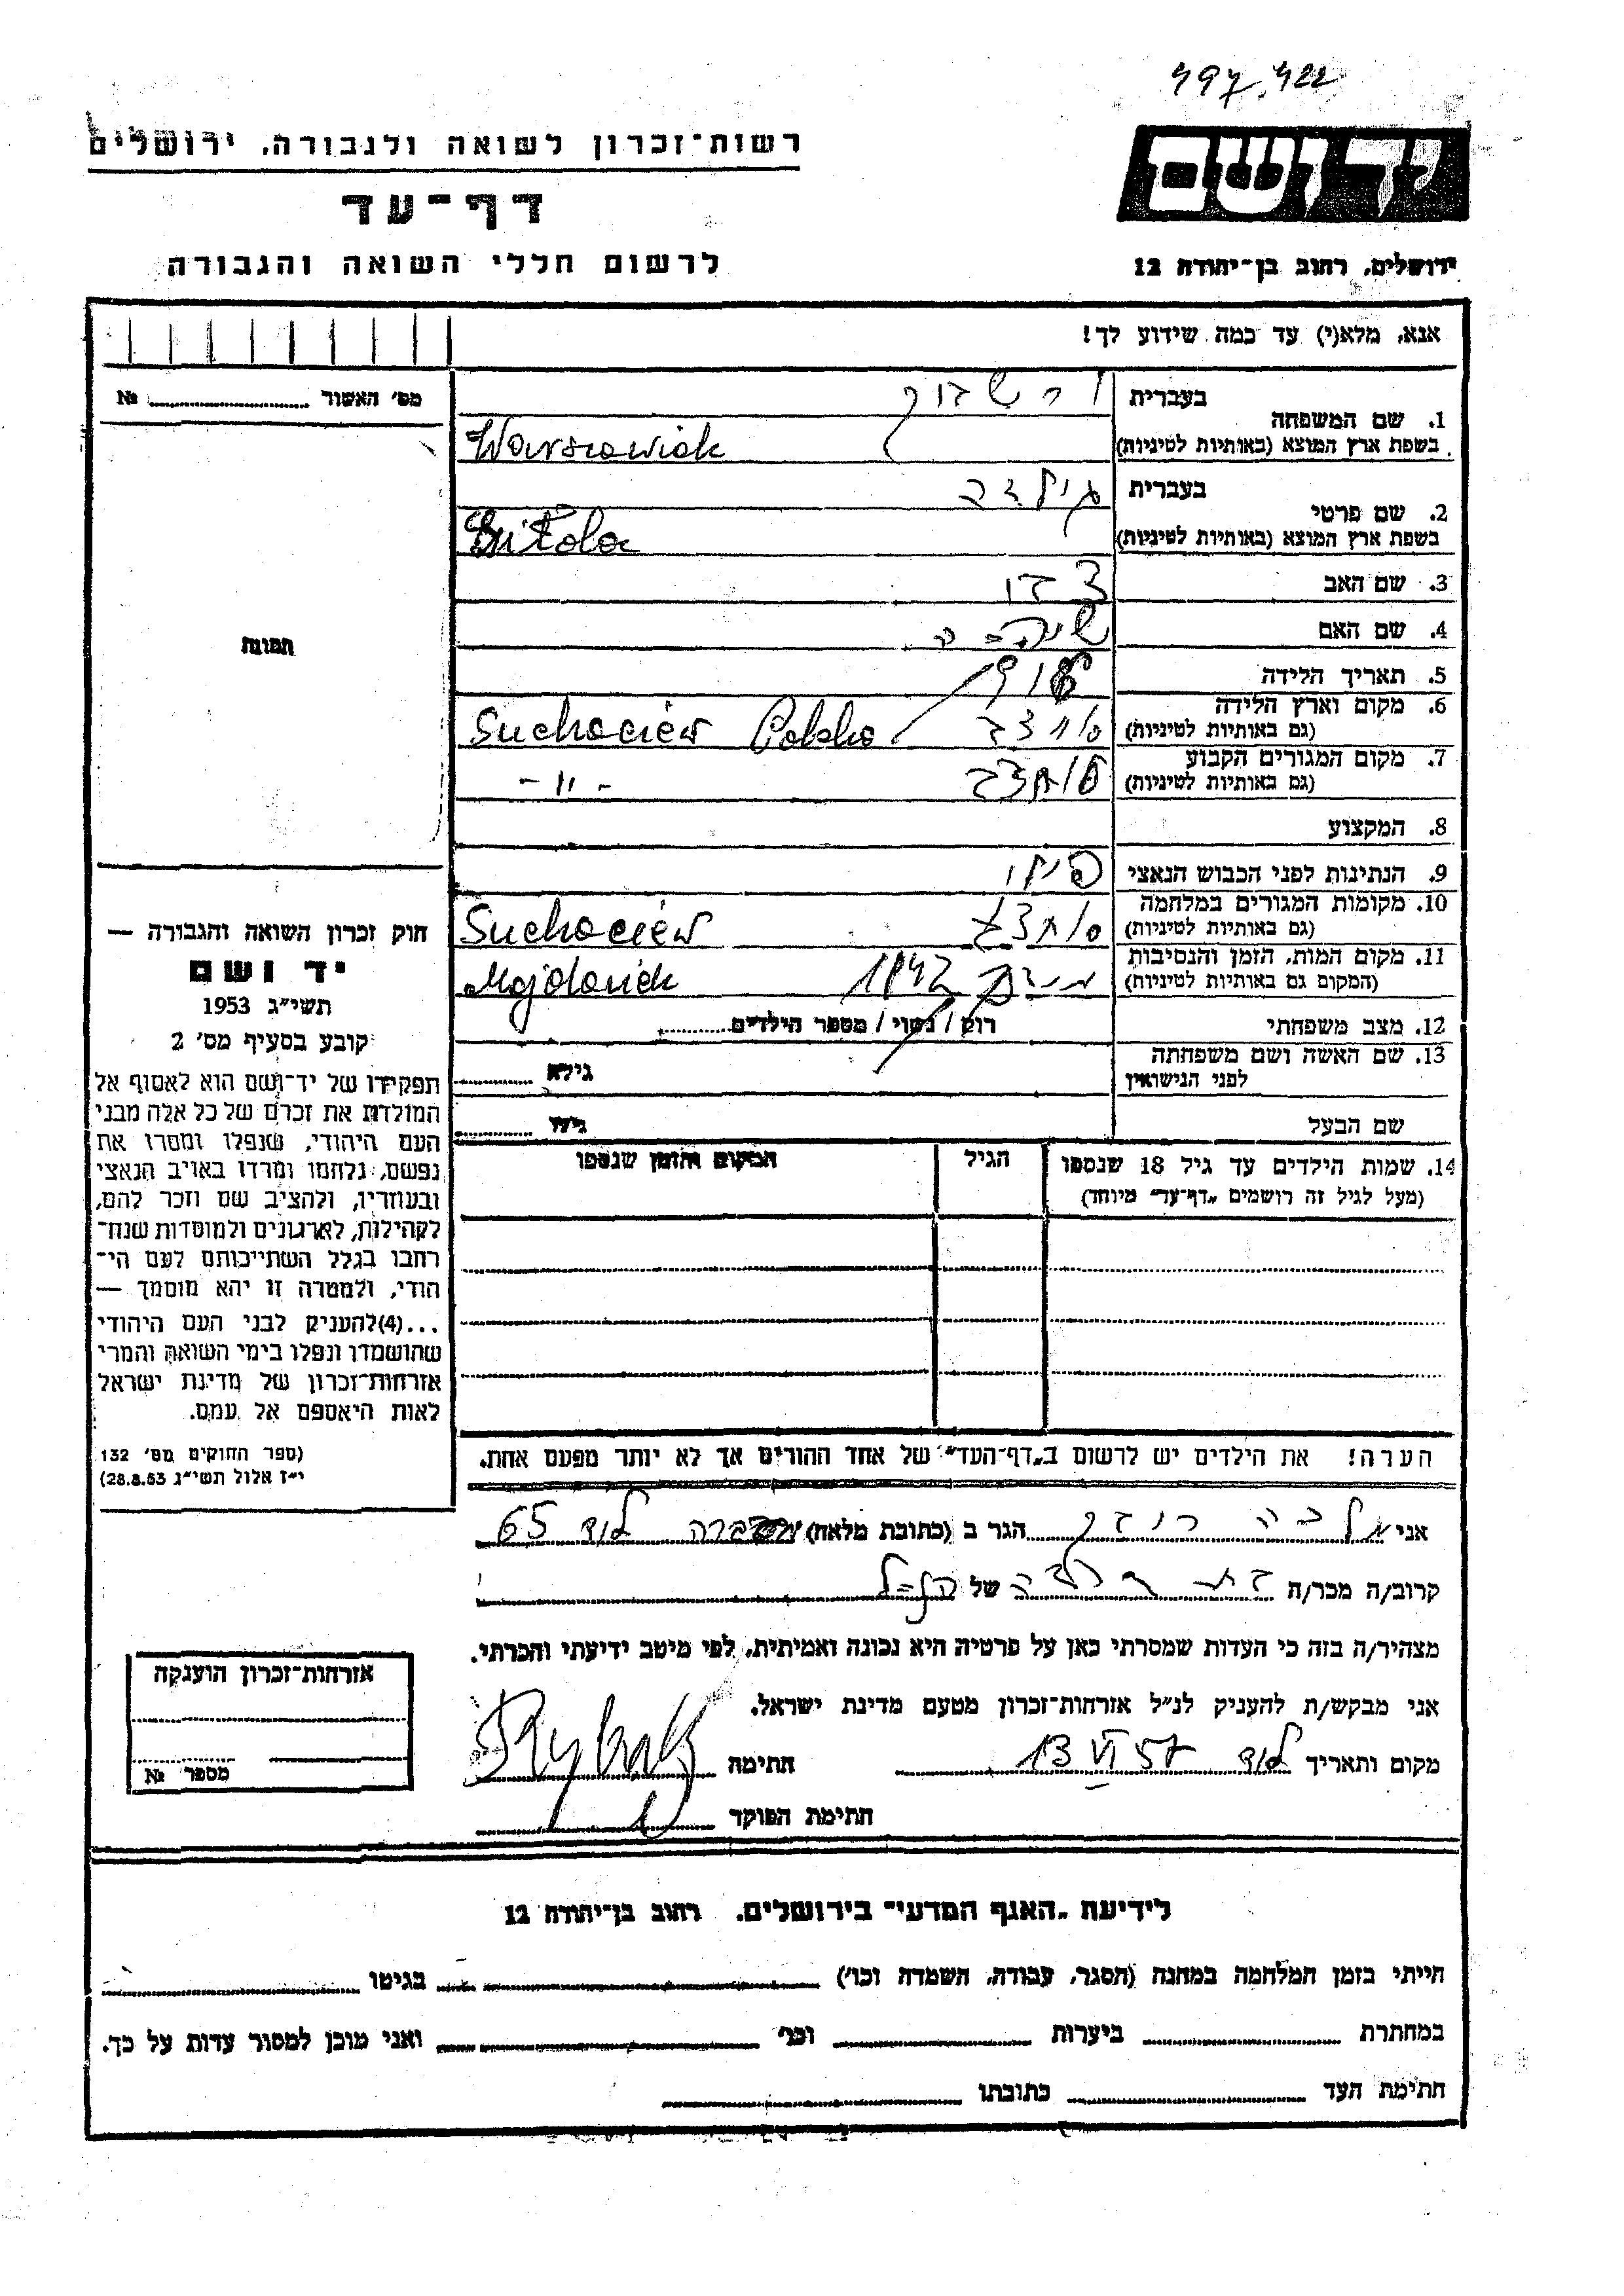 497.422
רשות־זכרון לשואה ולגבורה, ירושלים
יד ושם
דף־עד
לרשום חללי השואה והגבורה
ירושלים, רחוב בן־יהודה 12
אנא, מלא(י) עד כמה שידוע לך!
מס׳ האשור № 
1. שם המשפחה
בעברית
בשפת ארץ המוצא (באותיות לטיניות) Warszawiak
2. שם פרטי
בעברית
בשפת ארץ המוצא (באותיות לטיניות)
3. שם האב
4. שם האם
5. תאריך הלידה
6. מקום וארץ הלידה
(גם באותיות לטיניות) Suchaciew Polska
7. מקום המגורים הקבוע
(גם באותיות לטיניות) - 11 -
8. המקצוע
9. הנתינות לפני הכבוש הנאצי
10. מקומות המגורים במלחמה
(גם באותיות לטיניות) Suchaciew
11. מקום המות, הזמן והנסיבות
(המקום גם באותיות לטיניות) 1942 Majdanek
12. מצב משפחתי רוק / נשוי / מספר הילדים
13. שם האשה ושם משפחתה
לפני הנישואין גילא
שם הבעל גילו
תמונה
14. שמות הילדים עד גיל 18 שנספו
(מעל לגיל זה רושמים „דף־עד״ מיוחד)
הגיל
המקום והזמן שנספו
חוק זכרון השואה והגבורה —
יד ושם
תשי״ג 1953
קובע בסעיף מס׳ 2
תפקידו של יד־ושם הוא לאסוף אל
המולדת את זכרם של כל אלה מבני
העם היהודי, שנפלו ומסרו את
נפשם, נלחמו ומרדו באויב הנאצי
ובעוזריו, ולהציב שם וזכר להם,
לקהילות, לארגונים ולמוסדות שנח־
רחבו בגלל השתייכותם לעם הי־
הודי, ולמטרה זו יהא מוסמך —
...(4) להעניק לבני העם היהודי
שהושמדו ונפלו בימי השואה והמרי
אזרחות־זכרון של מדינת ישראל
לאות היאספם אל עמם.
(ספר החוקים מס׳ 132
י״ז אלול תשי״ג 28.8.53)
הערה! את הילדים יש לרשום ב„דף־העד״ של אחד ההורים אך לא יותר מפעם אחת.
אני הגר ב (כתובת מלאה) לוד 65
קרוב/ה מכר/ה של
מצהיר/ה בזה כי העדות שמסרתי כאן על פרטיה היא נכונה ואמיתית, לפי מיטב ידיעתי והכרתי.
אני מבקש/ת להעניק לנ״ל אזרחות־זכרון מטעם מדינת ישראל.
מקום ותאריך לוד 13 VI 57 חתימה Rybak
חתימת הפוקד
אזרחות־זכרון הוענקה
מספר №
לידיעת „האגף המדעי״ בירושלים, רחוב בן־יהודה 12
הייתי בזמן המלחמה במחנה (הסגר, עבודה, השמדה וכו׳) בגיטו
במחתרת ביערות וכו׳ ואני מוכן למסור עדות על כך.
חתימת העד כתובתו